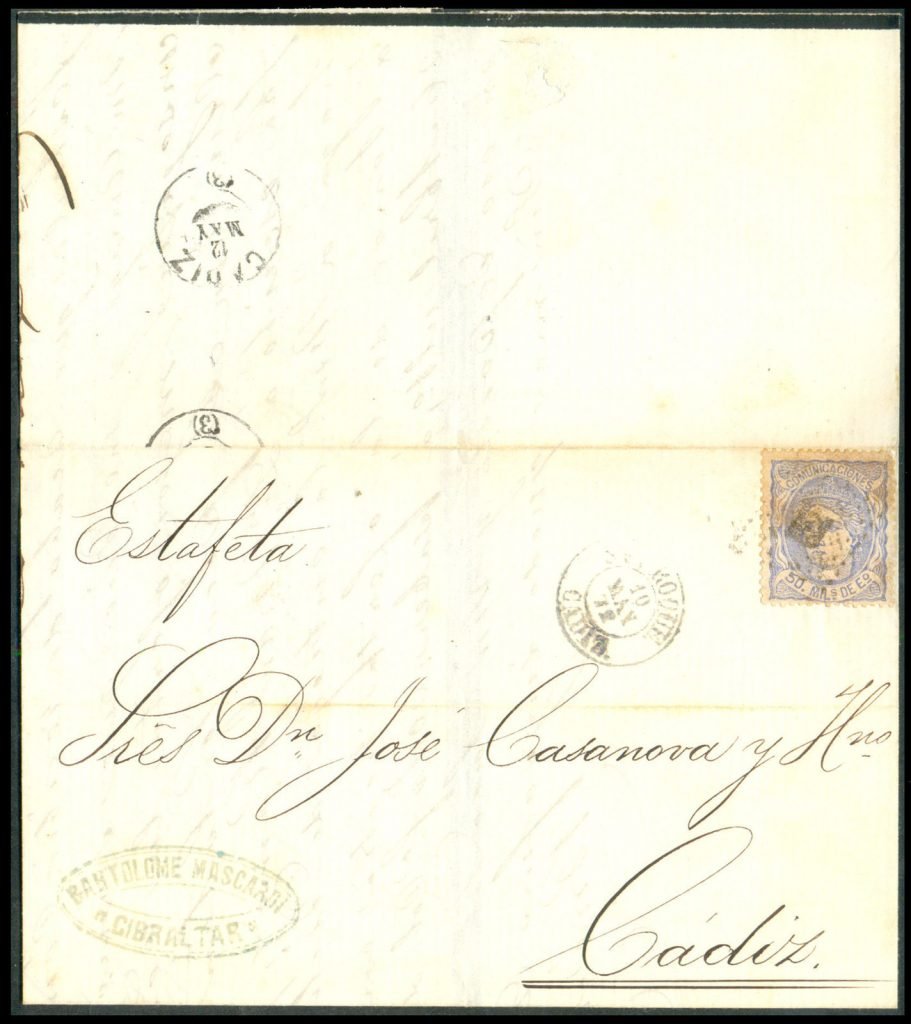 (3)
MAY
12
CADIZ
(3)
Estafeta
COMUNICACIONES
50. MILS DE Eo
ROQUE
10
MAY
72
CADIZ
Srēs Dn José Casanova y Hno
BARTOLOME MASCARDI
GIBRALTAR
Cádiz.